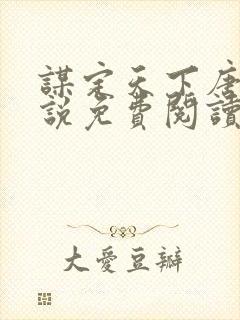 謀定天下唐
說免費閱讀
大愛豆瓣